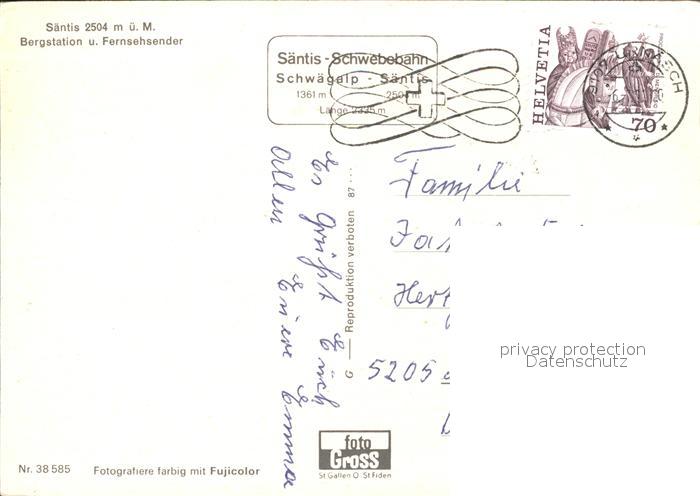 Säntis 2504 m ü. M.
Bergstation u. Fernsehsender
Säntis-Schwebebahn
Schwägalp - Säntis
1361 m 2504 m
Länge 2335 m
HELVETIA
70
Familie
5205
privacy protection
Datenschutz
Es grüßt Euch
Allen Eure Emma
G Reproduktion verboten 87 ...
foto
Gross
St Gallen O. St Fiden
Nr. 38 585 Fotografiere farbig mit Fujicolor